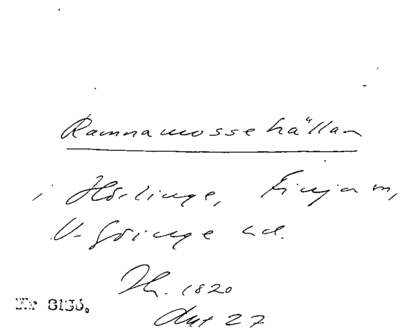 Ramnamossehällan
i Hörlinge, Finja sn,
V. Göinge hd.
Th. 1820
Ant 27
Nr 8136.